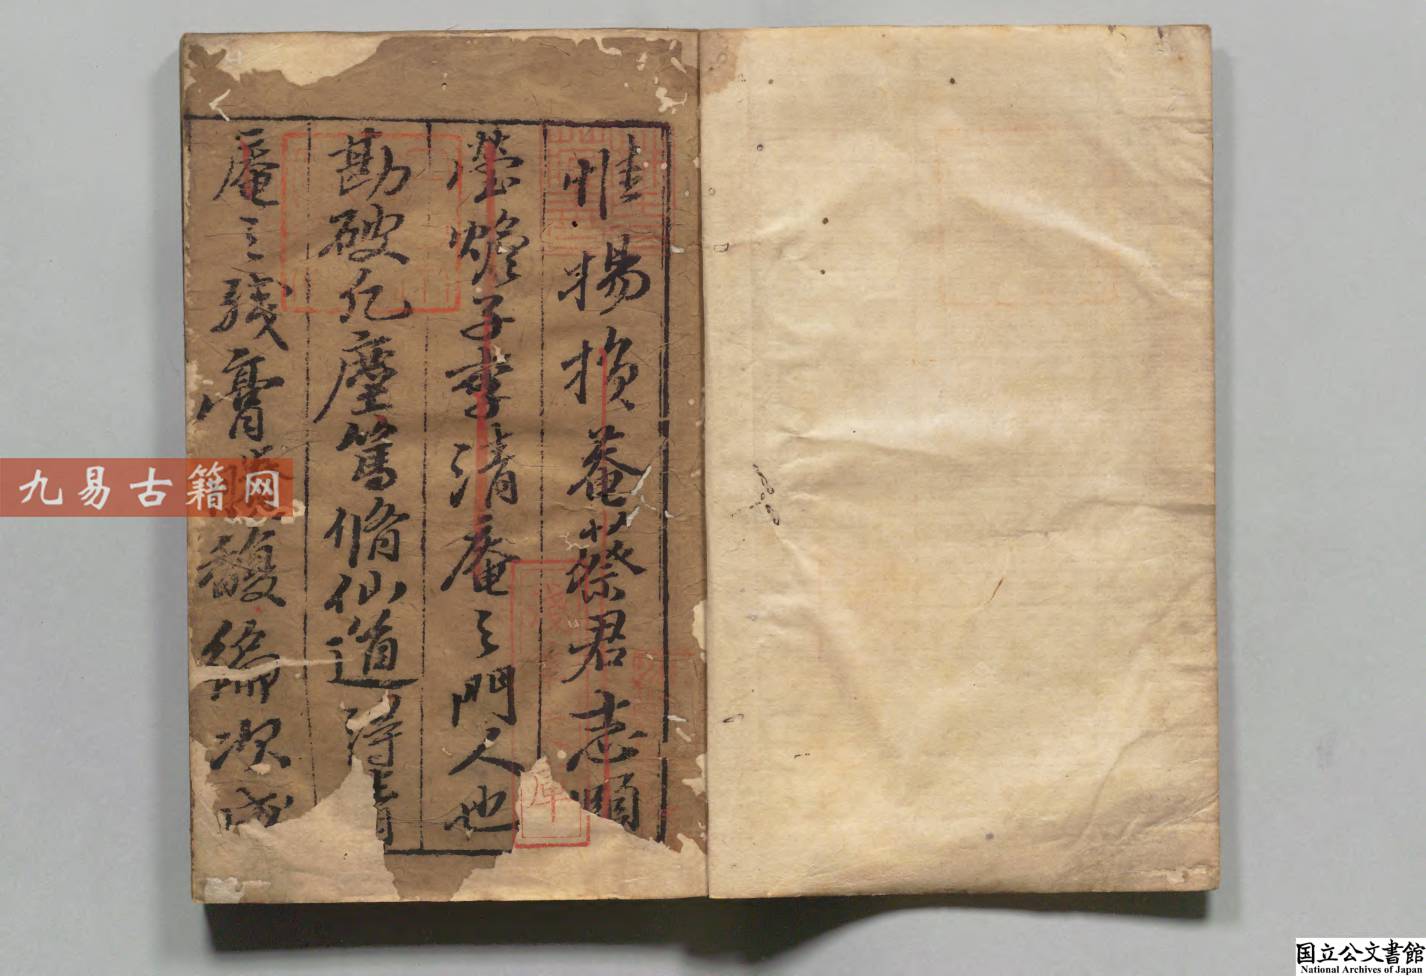 惟揚損菴蔡君志頤
瑩蟾子李清庵之門人也
勘破凡塵篤脩仙道得清
庵之殘膏賸馥編次成
淺草文庫
九易古籍网
国立公文書館
National Archives of Japan